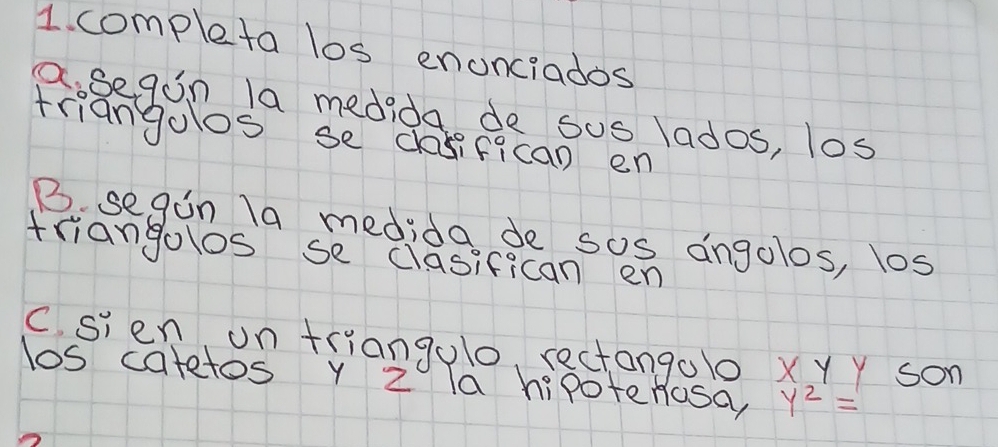 1. completa los enunciados
a. según la medida de sus lados, los
triangulos se clasifican en
B. según la medida de sus ángulos, los
triangulos se clasifican en
C. si en un triangulo rectangulo x y y son
los catetos y z la hipotenusa, y² =